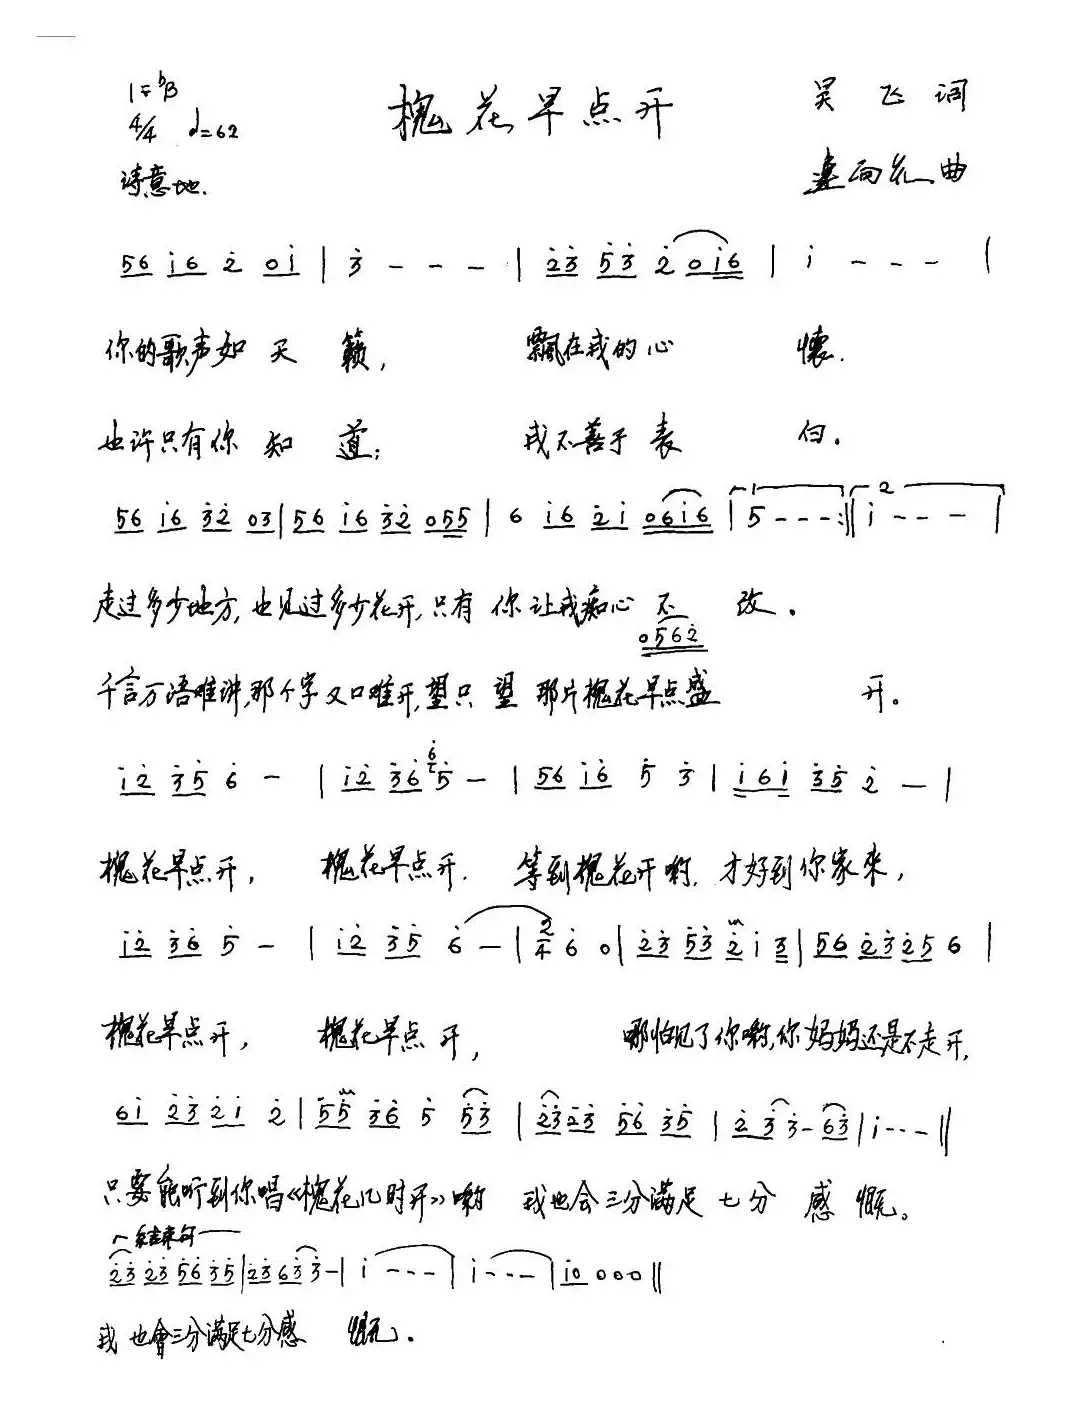 1=♭B
槐花早点开
吴飞词
4/4 ♩=62
诗意地.
向红曲
56 i6 2̇ 0i | 3̇ - - - | 2̇3̇ 5̇3̇ 2̇ 0i6 | i - - - |
你的歌声如天籁, 飘在我的心怀.
也许只有你知道; 我不善于表白.
56 i6 3̇2̇ 03̇ | 56 i6 3̇2̇ 055 | 6 i6 2̇i 06i6 | 1 5 - - - :‖ 2 i - - - |
走过多少地方,也见过多少花开,只有你让我痴心不改.
0562̇
千言万语难讲,那个字又口难开,望只望那片槐花早点盛开。
i2̇ 3̇5̇ 6̇ - | i2̇ 3̇6̇ 6̇5̇ - | 56 i6 5̇ 3̇ | i6i 3̇5̇ 2̇ - |
槐花早点开, 槐花早点开. 等到槐花开哟,才好到你家来,
i2̇ 3̇6̇ 5̇ - | i2̇ 3̇5̇ 6̇ - | 2/4 6̇ 0 | 2̇3̇ 5̇3̇ 2̇ i 3̇ | 56 2̇3̇2̇5 6 |
槐花早点开, 槐花早点开, 哪怕见了你哟,你妈妈还是不走开,
6i 2̇3̇ 2̇i 2̇ | 5̇5̇ 3̇6̇ 5̇ 5̇3̇ | 2̇3̇2̇3̇ 5̇6̇ 3̇5̇ | 2̇ 3̇ 3̇ - 63̇ | i - - - ‖
只要能听到你唱《槐花几时开》哟 我也会三分满足七分感慨。
结束句
2̇3̇ 2̇3̇ 5̇6̇ 3̇5̇ | 2̇3̇ 63̇ 3̇ - | i - - - | i - - - | i0 0 0 0 ‖
我也會三分满足七分感慨.